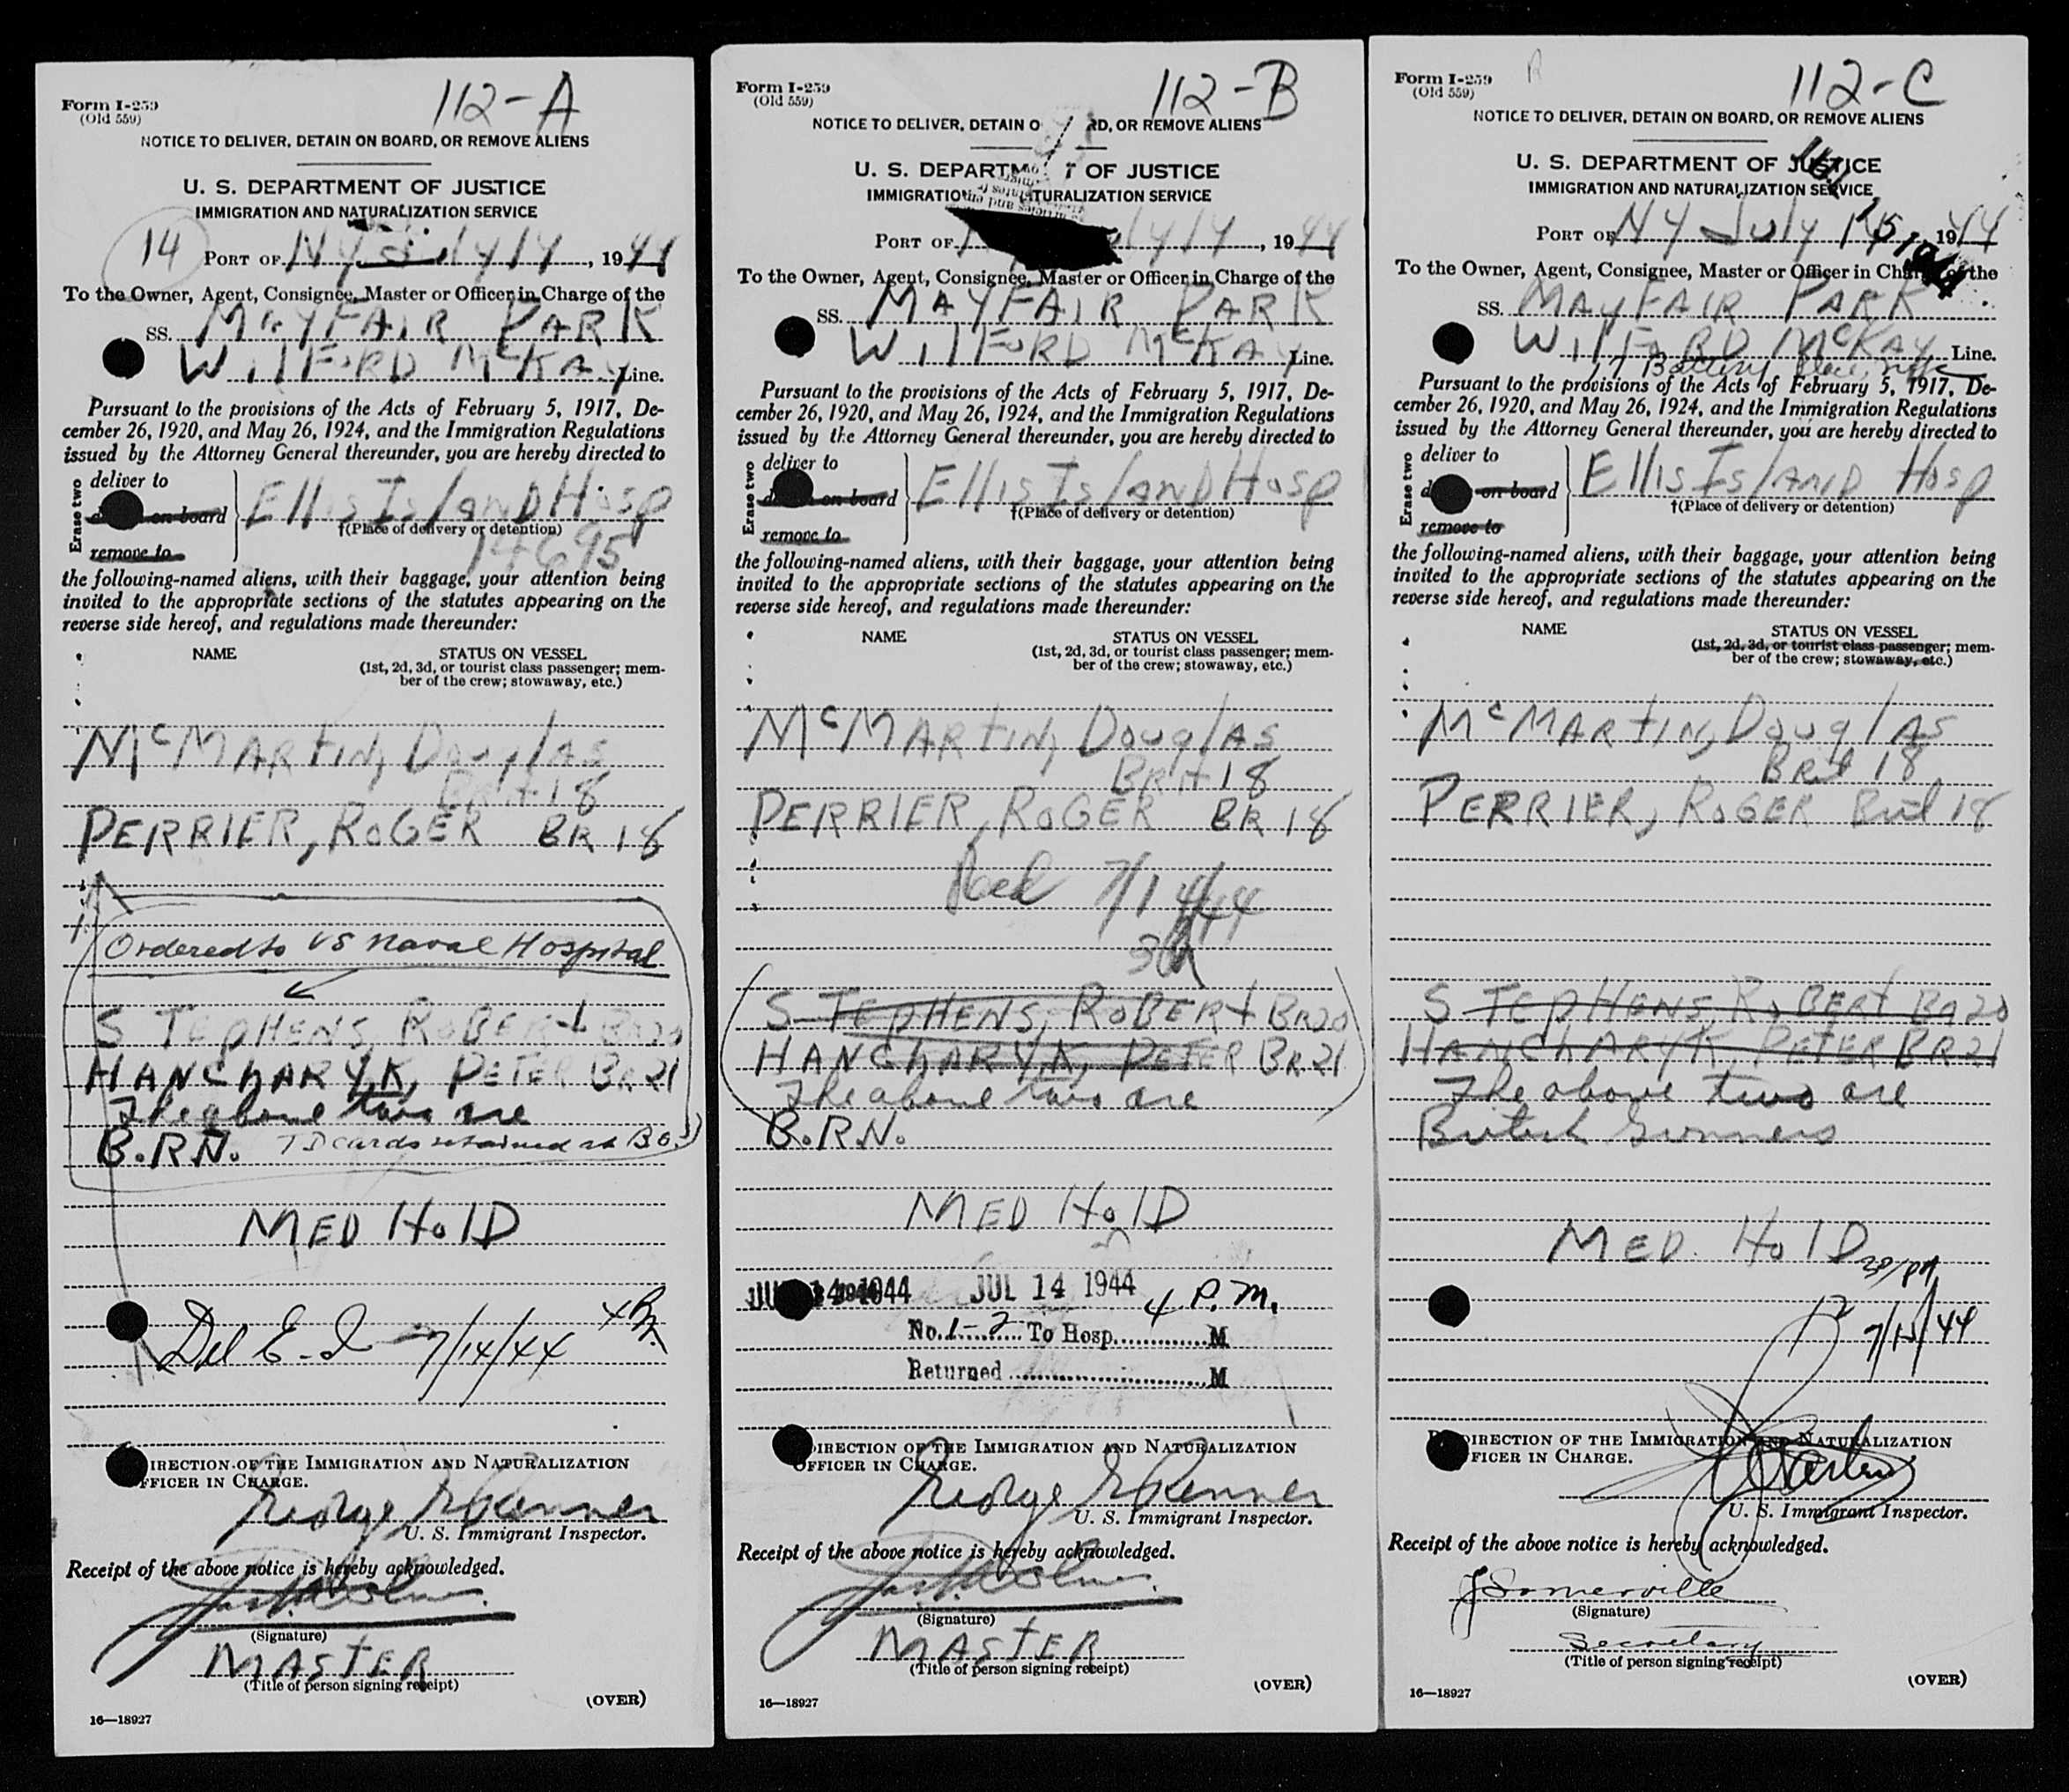 112-A
Form I-259
(Old 559)
NOTICE TO DELIVER, DETAIN ON BOARD, OR REMOVE ALIENS
U. S. DEPARTMENT OF JUSTICE
IMMIGRATION AND NATURALIZATION SERVICE
14
PORT OF NY July 14, 1944
To the Owner, Agent, Consignee, Master or Officer in Charge of the
SS. MAYFAIR PARK
WilFORD McKAY Line.
Pursuant to the provisions of the Acts of February 5, 1917, De-
cember 26, 1920, and May 26, 1924, and the Immigration Regulations
issued by the Attorney General thereunder, you are hereby directed to
Erase two
deliver to
on board
remove to
Ellis IslAND Hosp
†(Place of delivery or detention)
14695
the following-named aliens, with their baggage, your attention being
invited to the appropriate sections of the statutes appearing on the
reverse side hereof, and regulations made thereunder:
NAME
STATUS ON VESSEL
(1st, 2d, 3d, or tourist class passenger; mem-
ber of the crew; stowaway, etc.)
McMARtIN, DouglAS
BRit 18
PERRIER, ROGER BR 18
Ordered to US Naval Hospital
STEpHENS, ROBERt BR20
HANCHARYK, PETER BR21
The above two are
B.R.N. ID cards retained at B.O.
MED HolD
Del E. I 7/14/44 4 PM
DIRECTION OF THE IMMIGRATION AND NATURALIZATION
OFFICER IN CHARGE.
George
U. S. Immigrant Inspector.
Receipt of the above notice is hereby acknowledged.
(Signature)
MAStER
(Title of person signing receipt)
(OVER)
16—18927
112-B
Form I-259
(Old 559)
NOTICE TO DELIVER, DETAIN O RD, OR REMOVE ALIENS
U. S. DEPARTM T OF JUSTICE
IMMIGRATION TURALIZATION SERVICE
PORT OF ly 14, 1944
To the Owner, Agent, Consignee, Master or Officer in Charge of the
SS. MAYFAIR PARK
WilFORD McKAY Line.
Pursuant to the provisions of the Acts of February 5, 1917, De-
cember 26, 1920, and May 26, 1924, and the Immigration Regulations
issued by the Attorney General thereunder, you are hereby directed to
Erase two
deliver to
on board
remove to
Ellis IslAND Hosp
†(Place of delivery or detention)
the following-named aliens, with their baggage, your attention being
invited to the appropriate sections of the statutes appearing on the
reverse side hereof, and regulations made thereunder:
NAME
STATUS ON VESSEL
(1st, 2d, 3d, or tourist class passenger; mem-
ber of the crew; stowaway, etc.)
McMARtIN, DouglAS
BRit 18
PERRIER, ROGER BR 18
Recd 7/14/44
STEpHENS, ROBERt BR20
HANCHARYK, PETER BR21
The above two are
B.R.N.
MED HolD
JUL 14 1944 4 P.M.
No. 1-2 To Hosp. M
Returned M
DIRECTION OF THE IMMIGRATION AND NATURALIZATION
OFFICER IN CHARGE.
George
U. S. Immigrant Inspector.
Receipt of the above notice is hereby acknowledged.
(Signature)
MAStER
(Title of person signing receipt)
(OVER)
16—18927
112-C
Form I-259
(Old 559)
NOTICE TO DELIVER, DETAIN ON BOARD, OR REMOVE ALIENS
U. S. DEPARTMENT OF JUSTICE
IMMIGRATION AND NATURALIZATION SERVICE
PORT OF NY July 15, 1944
To the Owner, Agent, Consignee, Master or Officer in Charge of the
SS. MAYFAIR PARK
WilFORD McKAY Line.
17 Battery Place, NYC
Pursuant to the provisions of the Acts of February 5, 1917, De-
cember 26, 1920, and May 26, 1924, and the Immigration Regulations
issued by the Attorney General thereunder, you are hereby directed to
Erase two
deliver to
on board
remove to
Ellis IslAND Hosp
†(Place of delivery or detention)
the following-named aliens, with their baggage, your attention being
invited to the appropriate sections of the statutes appearing on the
reverse side hereof, and regulations made thereunder:
NAME
STATUS ON VESSEL
(1st, 2d, 3d, or tourist class passenger; mem-
ber of the crew; stowaway, etc.)
McMARtIN, DouglAS
BRit 18
PERRIER, ROGER Brit 18
STEpHENS, ROBERt BR20
HANCHARYK, PETER BR21
The above two are
British Gunners
MED. HolD
7/15/44
DIRECTION OF THE IMMIGRATION AND NATURALIZATION
OFFICER IN CHARGE.
U. S. Immigrant Inspector.
Receipt of the above notice is hereby acknowledged.
J Somerville
(Signature)
Secretary
(Title of person signing receipt)
(OVER)
16—18927